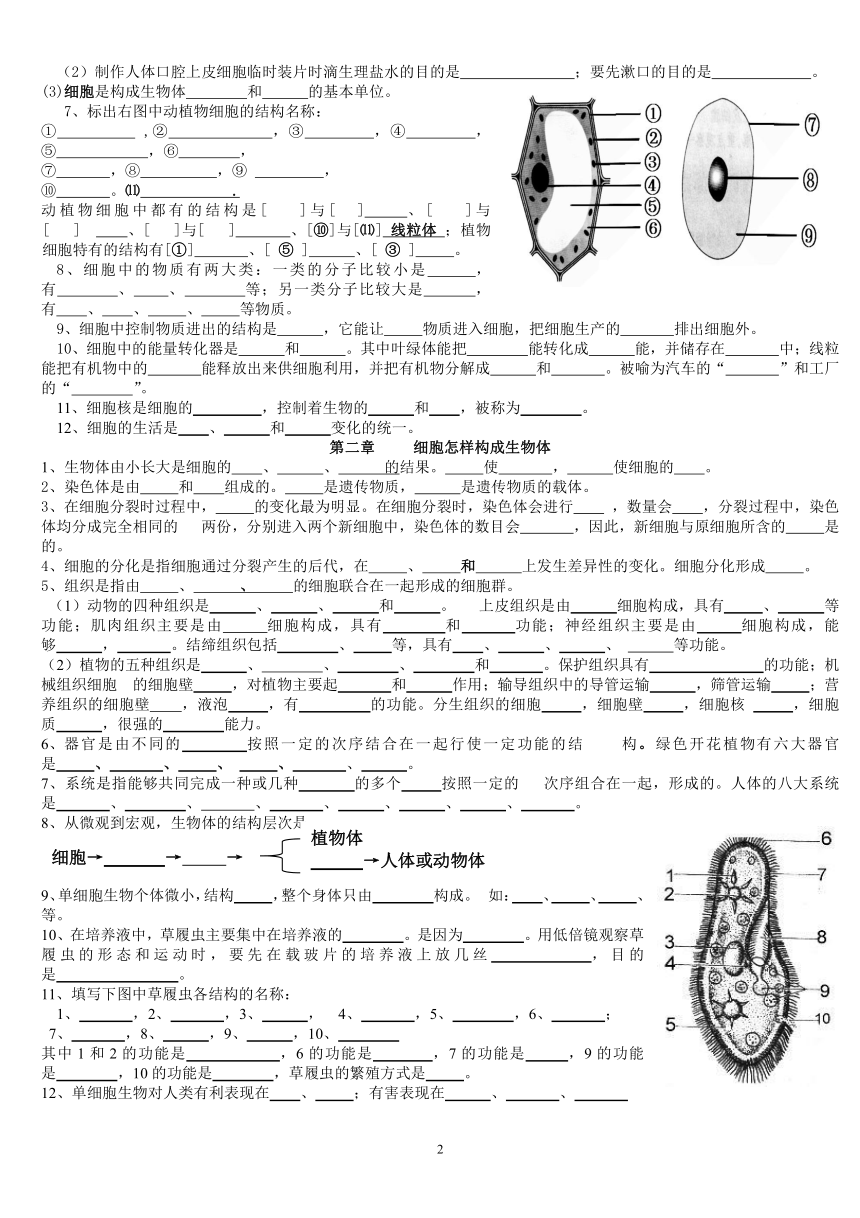 （2）制作人体口腔上皮细胞临时装片时滴生理盐水的目的是________________；要先漱口的目的是______________。
(3)细胞是构成生物体________和______的基本单位。
7、标出右图中动植物细胞的结构名称：
①__________ ,②______________,③_________,④_________,
⑤____________,⑥________,
⑦_______,⑧__________,⑨ _________,
⑩_______。⑾____________.
动植物细胞中都有的结构是[ ]与[ ]_____、[ ]与
[ ] ____、[ ]与[ ]_______、[⑩]与[⑾] 线粒体 ；植物
细胞特有的结构有[①]_______、[ ⑤ ]______、[ ③ ]_____。
8、细胞中的物质有两大类：一类的分子比较小是______，
有________、_____、________等；另一类分子比较大是_______，
有____、____、_____、_____等物质。
9、细胞中控制物质进出的结构是______，它能让_____物质进入细胞，把细胞生产的_______排出细胞外。
10、细胞中的能量转化器是______和______。其中叶绿体能把________能转化成______能，并储存在_______中；线粒
能把有机物中的_______能释放出来供细胞利用，并把有机物分解成______和_______。被喻为汽车的“_______”和工厂
的“________”。
11、细胞核是细胞的_________，控制着生物的______和____，被称为________。
12、细胞的生活是____、______和______变化的统一。
第二章 细胞怎样构成生物体
1、生物体由小长大是细胞的____、______、______的结果。_____使_______，______使细胞的____。
2、染色体是由_____和____组成的。_____是遗传物质，______是遗传物质的载体。
3、在细胞分裂时过程中，_____的变化最为明显。在细胞分裂时，染色体会进行____ ，数量会____，分裂过程中，染色
体均分成完全相同的 两份，分别进入两个新细胞中，染色体的数目会_______，因此，新细胞与原细胞所含的_____是
的。
4、细胞的分化是指细胞通过分裂产生的后代，在_____、_____和______上发生差异性的变化。细胞分化形成_____。
5、组织是指由_____、______、______的细胞联合在一起形成的细胞群。
（1）动物的四种组织是_____、______、______和_____。 上皮组织是由______细胞构成，具有_____、______等
功能；肌肉组织主要是由______细胞构成，具有_______和_______功能；神经组织主要是由______细胞构成，能
够______，_______。结缔组织包括________、_____等，具有____、______、_____、______等功能。
（2）植物的五种组织是______、________、_______、_______和_______。保护组织具有_______________的功能；机
械组织细胞 的细胞壁_____，对植物主要起_______和_____作用；输导组织中的导管运输______，筛管运输_____；营
养组织的细胞壁____，液泡_____，有_________的功能。分生组织的细胞_____，细胞壁_____，细胞核 _____，细胞
质______，很强的________能力。
6、器官是由不同的________按照一定的次序结合在一起行使一定功能的结 构。绿色开花植物有六大器官
是_____、_______、_____、_____、______、______。
7、系统是指能够共同完成一种或几种_______的多个_____按照一定的 次序组合在一起，形成的。人体的八大系统
是_______、________、_______、_______、______、______、______、_______。
8、从微观到宏观，生物体的结构层次是
植物体
细胞→________→______→
______→人体或动物体
9、单细胞生物个体微小，结构_____，整个身体只由________构成。 如：____、_____、_____、
等。
10、在培养液中，草履虫主要集中在培养液的________。是因为________。用低倍镜观察草
履虫的形态和运动时，要先在载玻片的培养液上放几丝_____________，目的
是________________。
11、填写下图中草履虫各结构的名称：
1、_______，2、_______，3、______， 4、_______，5、________，6、_______；
7、_______，8、_______，9、______，10、________
其中 1 和 2 的功能是____________，6 的功能是________，7 的功能是______，9 的功能
是________，10 的功能是________，草履虫的繁殖方式是_____。
12、单细胞生物对人类有利表现在____、_____；有害表现在______、_______、_______
①
②
③
④
⑤
⑥
⑦
⑧
⑨
1
2
3
4
5
6
7
8
9
10
2